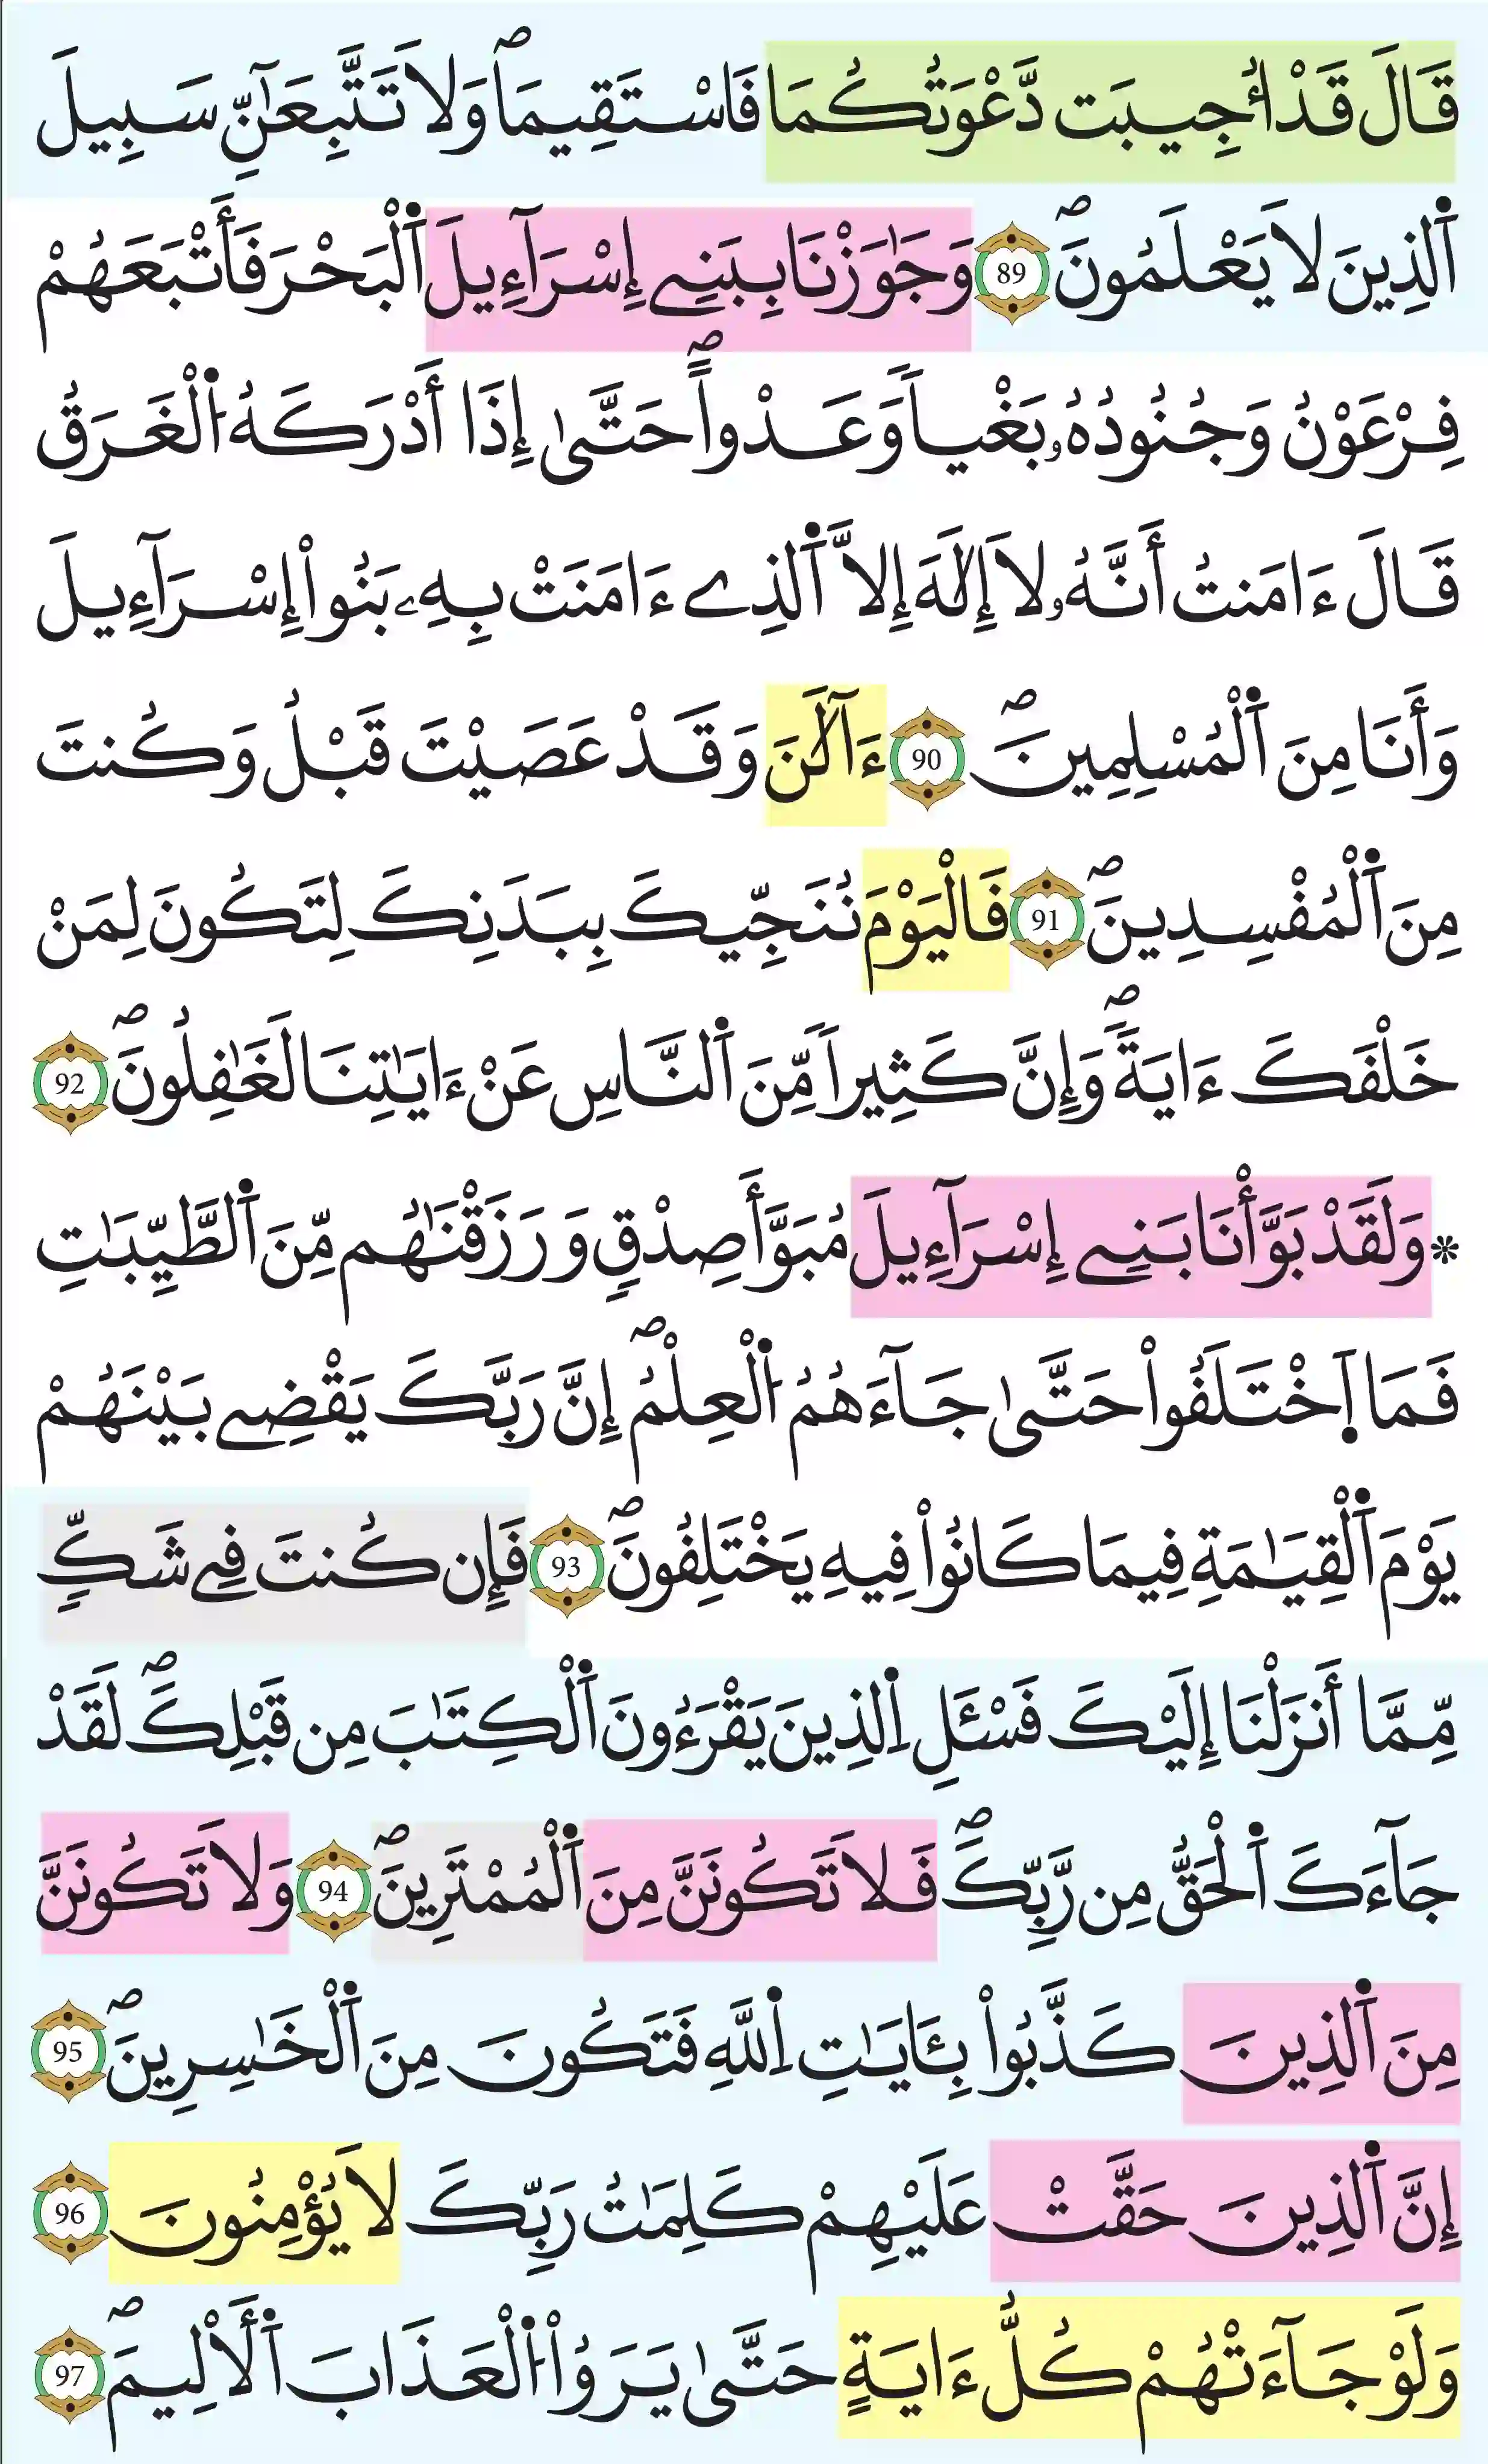 قَالَ قَدْ أُجِيبَت دَّعْوَتُكُمَا فَاسْتَقِيمَاۖ وَلَا تَتَّبِعَآنِّ سَبِيلَ
اَ۬لذِينَ لَا يَعْلَمُونَۖ 89 وَجَٰوَزْنَا بِبَنِےٓ إِسْرَآءِيلَ اَ۬لْبَحْرَ فَأَتْبَعَهُمْ
فِرْعَوْنُ وَجُنُودُهُۥ بَغْياٗ وَعَدْواًۖ حَتَّىٰٓ إِذَآ أَدْرَكَهُ اُ۬لْغَرَقُ
قَالَ ءَامَنتُ أَنَّهُۥ لَآ إِلَٰهَ إِلَّا اَ۬لذِےٓ ءَامَنَتْ بِهِۦ بَنُوٓاْ إِسْرَآءِيلَ
وَأَنَا مِنَ اَ۬لْمُسْلِمِينَۖ 90 ءَآلَٰنَ وَقَدْ عَصَيْتَ قَبْلُ وَكُنتَ
مِنَ اَ۬لْمُفْسِدِينَۖ 91 فَالْيَوْمَ نُنَجِّيكَ بِبَدَنِكَ لِتَكُونَ لِمَنْ
خَلْفَكَ ءَايَةٗۖ وَإِنَّ كَثِيراٗ مِّنَ اَ۬لنَّاسِ عَنْ ءَايَٰتِنَا لَغَٰفِلُونَۖ 92
* وَلَقَدْ بَوَّأْنَا بَنِےٓ إِسْرَآءِيلَ مُبَوَّأَ صِدْقٖ وَرَزَقْنَٰهُم مِّنَ اَ۬لطَّيِّبَٰتِ
فَمَا اَ۪خْتَلَفُواْ حَتَّىٰ جَآءَهُمُ اُ۬لْعِلْمُۖ إِنَّ رَبَّكَ يَقْضِے بَيْنَهُمْ
يَوْمَ اَ۬لْقِيَٰمَةِ فِيمَا كَانُواْ فِيهِ يَخْتَلِفُونَۖ 93 فَإِن كُنتَ فِے شَكّٖ
مِّمَّآ أَنزَلْنَآ إِلَيْكَ فَسْـَٔلِ اِ۬لذِينَ يَقْرَءُونَ اَ۬لْكِتَٰبَ مِن قَبْلِكَۖ لَقَدْ
جَآءَكَ اَ۬لْحَقُّ مِن رَّبِّكَۖ فَلَا تَكُونَنَّ مِنَ اَ۬لْمُمْتَرِينَۖ 94 وَلَا تَكُونَنَّ
مِنَ اَ۬لذِينَ كَذَّبُواْ بِـَٔايَٰتِ اِ۬للَّهِ فَتَكُونَ مِنَ اَ۬لْخَٰسِرِينَۖ 95
إِنَّ اَ۬لذِينَ حَقَّتْ عَلَيْهِمْ كَلِمَٰتُ رَبِّكَ لَا يُؤْمِنُونَ 96
وَلَوْ جَآءَتْهُمْ كُلُّ ءَايَةٍ حَتَّىٰ يَرَوُاْ اُ۬لْعَذَابَ اَ۬لْأَلِيمَۖ 97